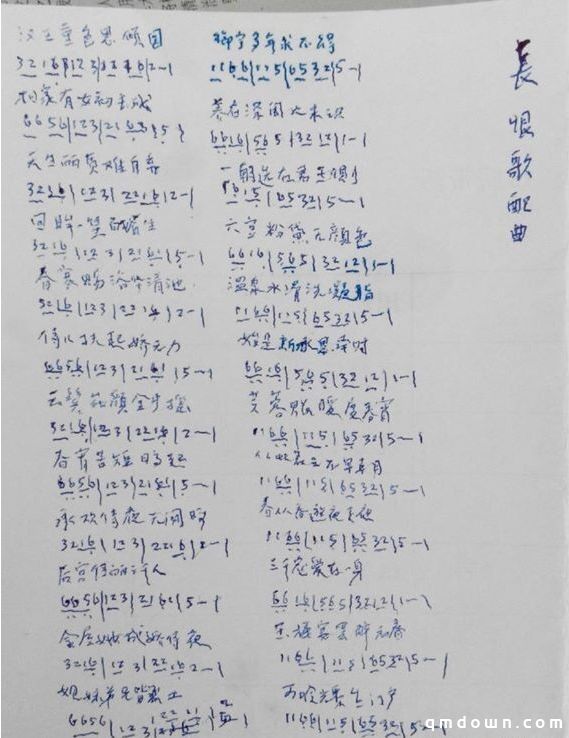 長恨歌配曲
汉王重色思倾国
3216|123|2216|2-|
杨家有女初长成
6656|123|2163|5-|
天生丽质难自弃
3216|123|2216|2-|
回眸一笑百媚生
3216|123|2161|5-|
春寒赐浴华清池
3216|123|2216|2-|
侍儿扶起娇无力
6656|123|2161|5-|
云鬓花颜金步摇
3216|123|2216|2-|
春宵苦短日高起
6656|123|2161|5-|
承欢侍夜无闲暇
3216|123|2216|2-|
后宫佳丽三千人
6656|123|2161|5-|
金屋妆成娇侍夜
3216|123|2216|2-|
姐妹弟兄皆列土
6656|123|
御宇多年求不得
1166|115|6532|5-|
养在深闺人未识
6616|565|3212|1-|
一朝选在君王侧
|6532|5-|
六宫粉黛无颜色
6616|565|3212|1-|
温泉水滑洗凝脂
1166|115|6532|5-|
始是新承恩泽时
6616|565|3212|1-|
芙蓉帐暖度春宵
1166|115|6532|5-|
从此君王不早朝
1166|115|6532|5-|
春从春游夜专夜
1166|115|6532|5-|
三千宠爱在一身
6616|565|3212|1-|
玉楼宴罢醉和春
1166|115|6532|5-|
可怜光彩生门户
1166|115|6532|5-|
qmdown.com